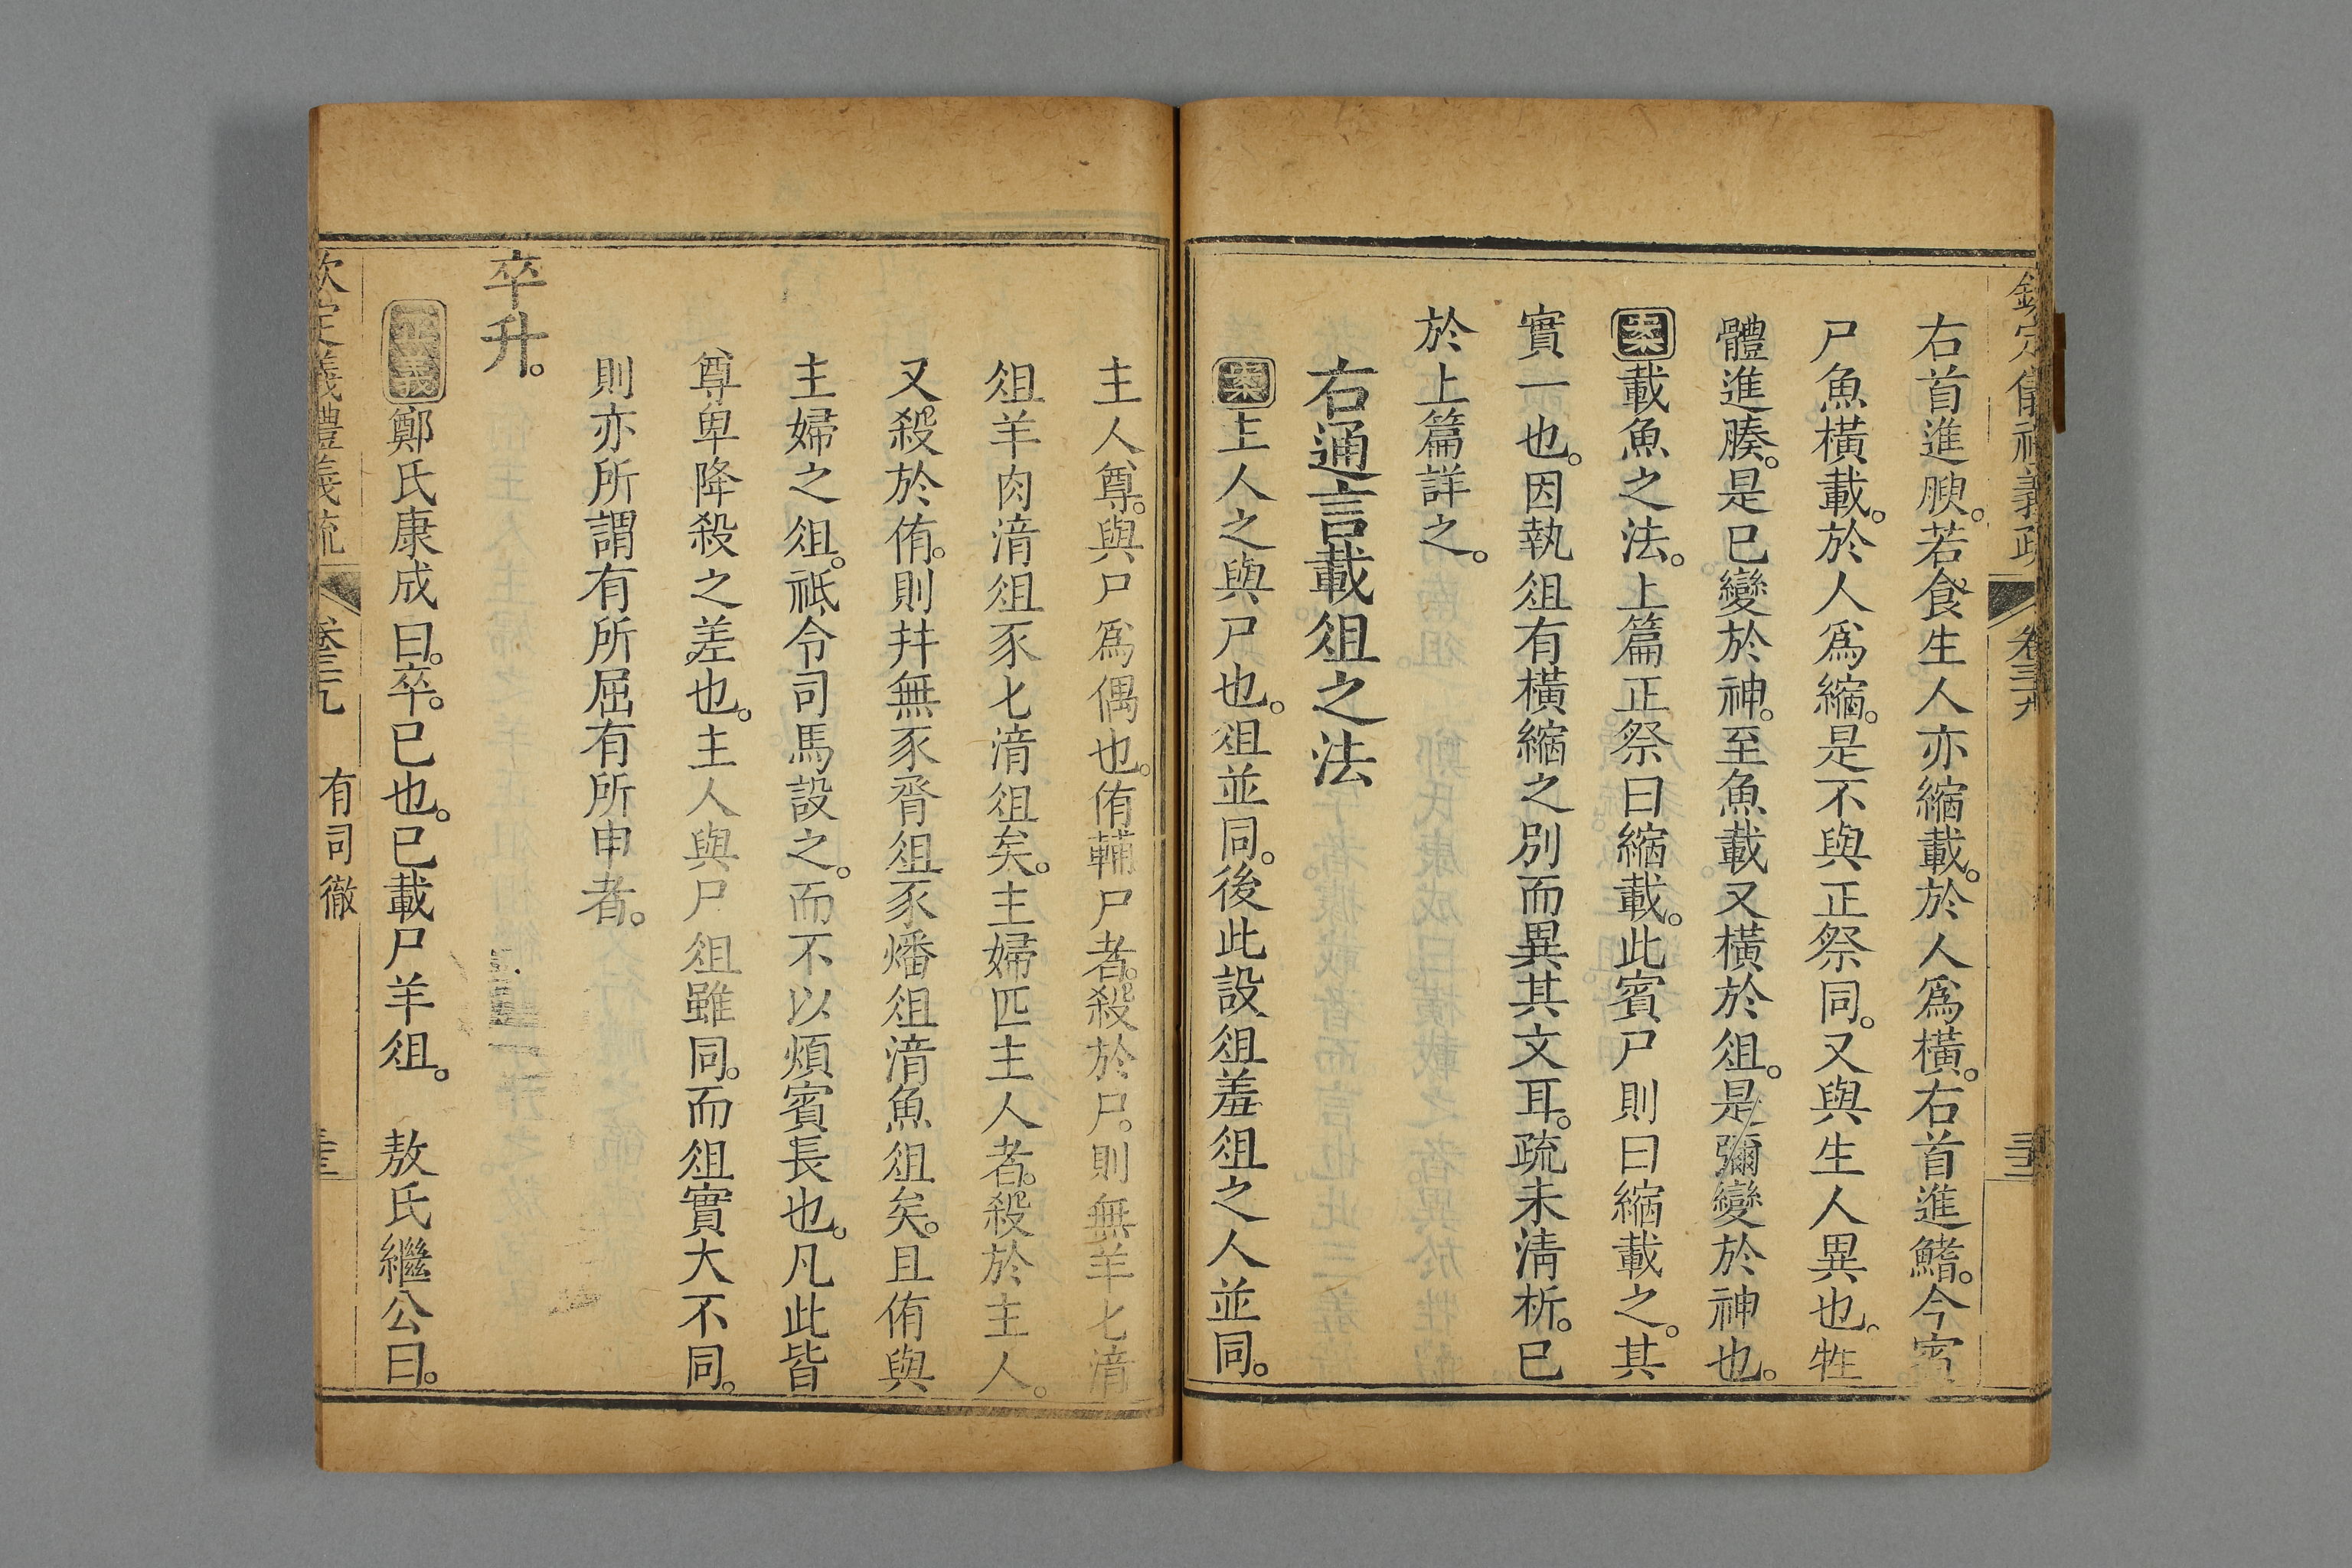 欽定儀禮義疏 卷三十九
右首進腴。若食生人亦縮載。於人爲橫。右首進鰭。今賓
尸魚橫載。於人爲縮。是不與正祭同。又與生人異也。牲
體進腠。是已變於神。至魚載又橫於俎。是彌變於神也。
案載魚之法。上篇正祭曰縮載。此賓尸則曰縮載之。其
實一也。因執俎有橫縮之別而異其文耳。疏未淸析。已
於上篇詳之。
右通言載俎之法
案主人之與尸也。俎並同。後此設俎羞俎之人並同。
主人尊。與尸爲偶也。侑輔尸者。殺於尸。則無羊匕湇
俎羊肉湇俎豕匕湇俎矣。主婦匹主人者。殺於主人。
又殺於侑。則幷無豕脀俎豕燔俎湇魚俎矣。且侑與
主婦之俎。祗令司馬設之。而不以煩賓長也。凡此皆
尊卑降殺之差也。主人與尸俎雖同。而俎實大不同。
則亦所謂有所屈有所申者。
卒升。
正義鄭氏康成曰。卒。已也。已載尸羊俎。 敖氏繼公曰。
欽定義禮義疏 卷三九 有司徹